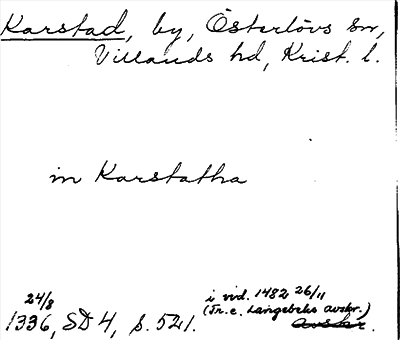 Karstad, by, Österlövs sn,
Villands hd, Krist. l.
in Karstatha
24/8
1336, SD 4, s. 521.
i vid. 1482 26/11
(Tr. e. Langebeks avskr.)
avskr.